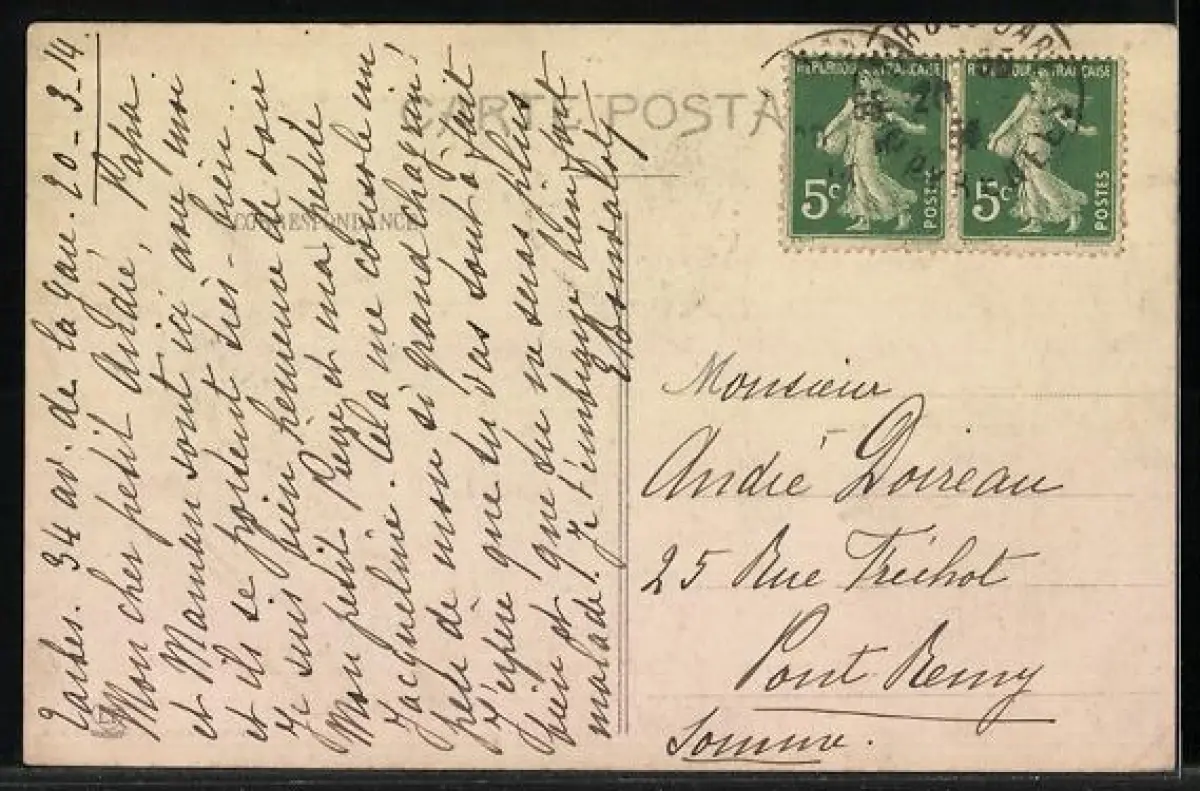 Tarbes. 34 av. de la Gare. 20-3-14.
Mon cher petit André, Papa
et Maman sont ici avec moi
et ils se portent très-bien..
Je suis bien heureuse de voir
mon petit Pierre et ma petite
Jacqueline. Cela me console un
peu de mon si grand chagrin!
J'espère que tu vas tout à fait
bien et que tu ne seras plus
malade. Je t'embrasse bien fort
CARTE POSTA
CORRESPONDANCE
REPUBLIQUE FRANÇAISE
5c
POSTES
REPUBLIQUE FRANÇAISE
5c
POSTES
Monsieur
André Doireau
25 Rue Tréhot
Pont Remy
Somme.